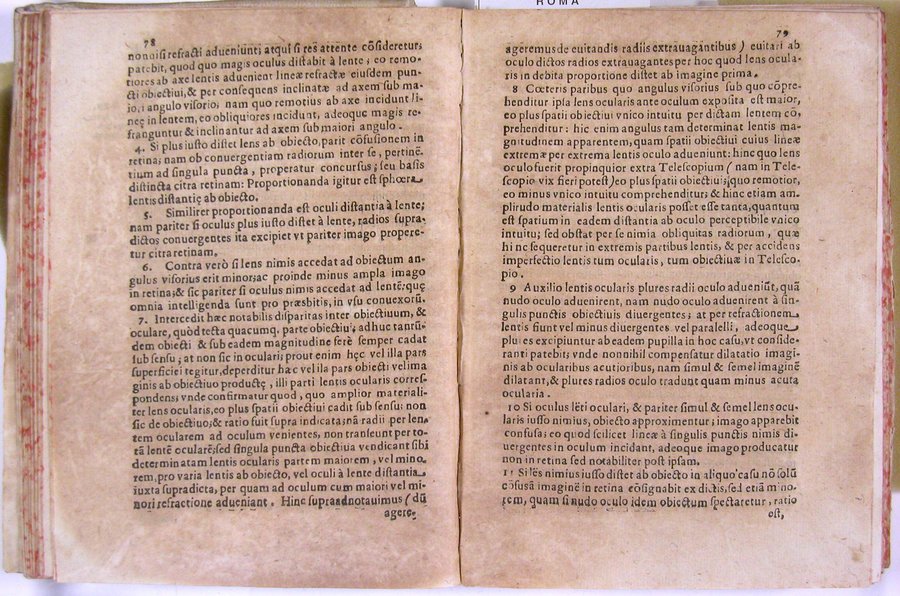 ROMA
78
non nisi refracti adueniunt; atqui si res attente cõsideretur;
patebit, quod quo magis oculus distabit à lente; eo remo-
tiores ab axe lentis aduenient lineæ refractæ eiusdem pun-
cti obiectiui, & per consequens inclinatæ ad axem sub ma-
iori angulo visorio; nam quo remotius ab axe incidunt li-
neę in lentem, eo obliquiores incidunt, adeoque magis re-
franguntur & inclinantur ad axem sub maiori angulo.
4. Si plus iusto distet lens ab obiecto, parit cõfusionem in
retina; nam ob conuergentiam radiorum inter se, pertinẽ-
tium ad singula puncta, properatur concursus; seu basis
distincta citra retinam: Proportionanda igitur est sphœra
lentis distantię ab obiecto.
5. Similirer proportionanda est oculi distantia à lente;
nam pariter si oculus plus iusto distet à lente, radios supra-
dictos conuergentes ita excipiet vt pariter imago propere-
tur citra retinam.
6. Contra verò si lens nimis accedat ad obiectum an-
gulus visorius erit minor; ac proinde minus ampla imago
in retina; & sic pariter si oculus nimis accedat ad lentẽ: quę
omnia intelligenda sunt pro præsbitis, in vsu conuexorũ.
7. Intercedit hæc notabilis disparitas inter obiectiuum, &
oculare, quòd tecta quacumq. parte obiectiui; adhuc tantũ-
dem obiecti & sub eadem magnitudine ferè semper cadat
sub sensu; at non sic in oculari; prout enim hęc vel illa pars
superficiei tegitur, deperditur hæc vel illa pars obiecti vel ima
ginis ab obiectiuo productę, illi parti lentis ocularis corres-
pondens; vnde confirmatur quod, quo amplior materiali-
ter lens ocularis, eo plus spatii obiectiui cadit sub sensu: non
sic de obiectiuo; & ratio fuit supra indicata; nã radii per len
tem ocularem ad oculum venientes, non transeunt per to-
tã lentẽ ocularẽ; sed singula puncta obiectiua vendicant sibi
determinatam lentis ocularis partem maiorem, vel mino-
rem, pro varia lentis ab obiecto, vel oculi à lente distantia
iuxta supradicta, per quam ad oculum cum maiori vel mi-
nori refractione adueniant. Hinc supra adnotauimus (dũ
agere-
79
ageremus de euitandis radiis extrauagantibus) euitari ab
oculo dictos radios extrauagantes per hoc quod lens ocula-
ris in debita proportione distet ab imagine prima.
8 Cœteris paribus quo angulus visorius sub quo cõpre-
henditur ipsa lens ocularis ante oculum exposita est maior,
eo plus spatii obiectiui vnico intuitu per dictam lentem cõ-
prehenditur: hic enim angulus tam determinat lentis ma-
gnitudinem apparentem, quam spatii obiectiui cuius lineæ
extremæ per extrema lentis oculo adueniunt: hinc quo lens
oculo fuerit propinquior extra Telescopium (nam in Tele-
scopio vix fieri potest) eo plus spatii obiectiui; quo remotior,
eo minus vnico intuitu comprehenditur; & hinc etiam am-
plirudo materialis lentis ocularis posset esse tanta, quantum
est spatium in eadem distantia ab oculo perceptibile vnico
intuitu; sed obstat per se nimia obliquitas radiorum, quæ
hinc sequeretur in extremis partibus lentis, & per accidens
imperfectio lentis tum ocularis, tum obiectiuæ in Telesco-
pio.
9 Auxilio lentis ocularis plures radii oculo adueniũt, quã
nudo oculo aduenirent, nam nudo oculo aduenirent à sin-
gulis punctis obiectiuis diuergentes; at per refractionem
lentis fiunt vel minus diuergentes vel paralleli, adeoque
plures excipiuntur ab eadem pupilla in hoc casu, vt conside-
ranti patebit; vnde nonnihil compensatur dilatatio imagi-
nis ab ocularibus acutioribus, nam simul & semel imaginẽ
dilatant, & plures radios oculo tradunt quam minus acuta
ocularia.
10 Si oculus lẽti oculari, & pariter simul & semel lens ocu-
laris iusso nimius, obiecto approximentur; imago apparebit
confusa; eo quod scilicet lineæ à singulis punctis nimis di-
uergentes in oculum incidant, adeoque imago producatur
non in retina sed notabiliter post ipsam.
11 Si lẽs nimius iusso distet ab obiecto in aliquo casu nõ solũ
cõfusã imaginẽ in retina cõsignabit ex dictis, sed etiã mino-
rem, quam si nudo oculo idem obiectum spectaretur, ratio
est,